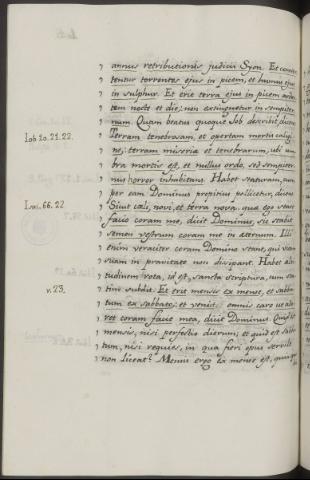 annus retributionis judicii Syon. Et conver
tentur torrentes ejus in picem, et humus ejus
in sulphur. Et erit terra ejus in picem arden
tem nocte et die; non extinguetur in sempiter
num. Quam beatus quoque Job describit, dicens
Iob 10. 21. 22.
Terram tenebrosam, et opertam mortis caligi
ne; terram miseriæ et tenebrarum, ubi um
bra mortis est, et nullus ordo, sed sempiter
nus horror inhabitans. Habet staturam, sem
per eam Dominus propitius pollicetur, dicens
Isai. 66. 22.
Sicut cæli novi, et terra nova, quæ ego stare
facio coram me, dicit Dominus, sic stabit
semen vestrum coram me in æternum. Illi
enim veraciter coram Domino stant, qui
suam in pravitate non dissipant. Habet
tudinem rota, id est, sancta scriptura, cum sta
tim subdit. Et erit mensis ex mense, et sabba
v. 23.
tum ex sabbato; et veniet omnis caro ut ado
ret coram facie mea, dicit Dominus. Quid est
mensis, nisi perfectio dierum; et quid est sabba
tum, nisi requies, in qua fieri opus servile
non liceat? Mensis ergo ex mense est, quia